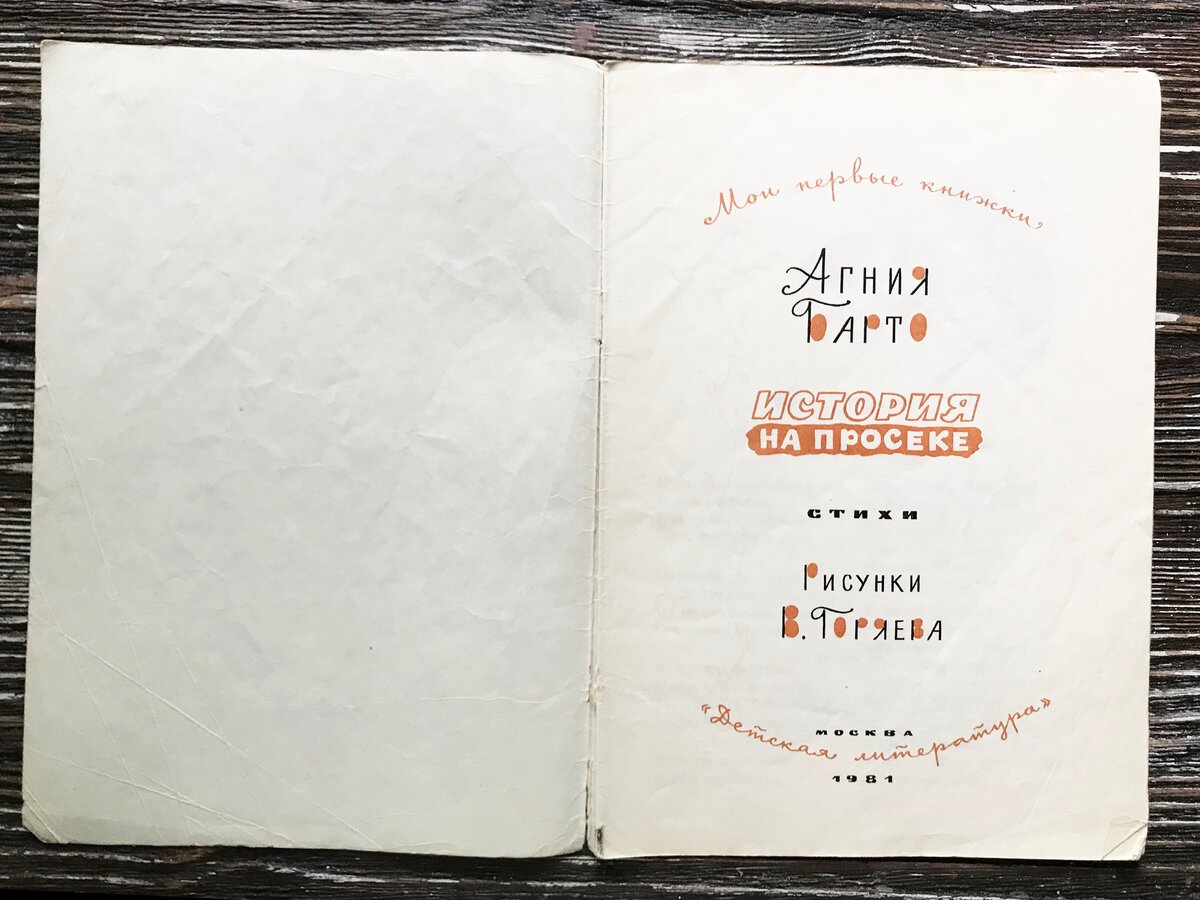 Мои первые книжки
Агния
Барто
ИСТОРИЯ
НА ПРОСЕКЕ
СТИХИ
Рисунки
В. Горяева
МОСКВА
"Детская литература"
1981